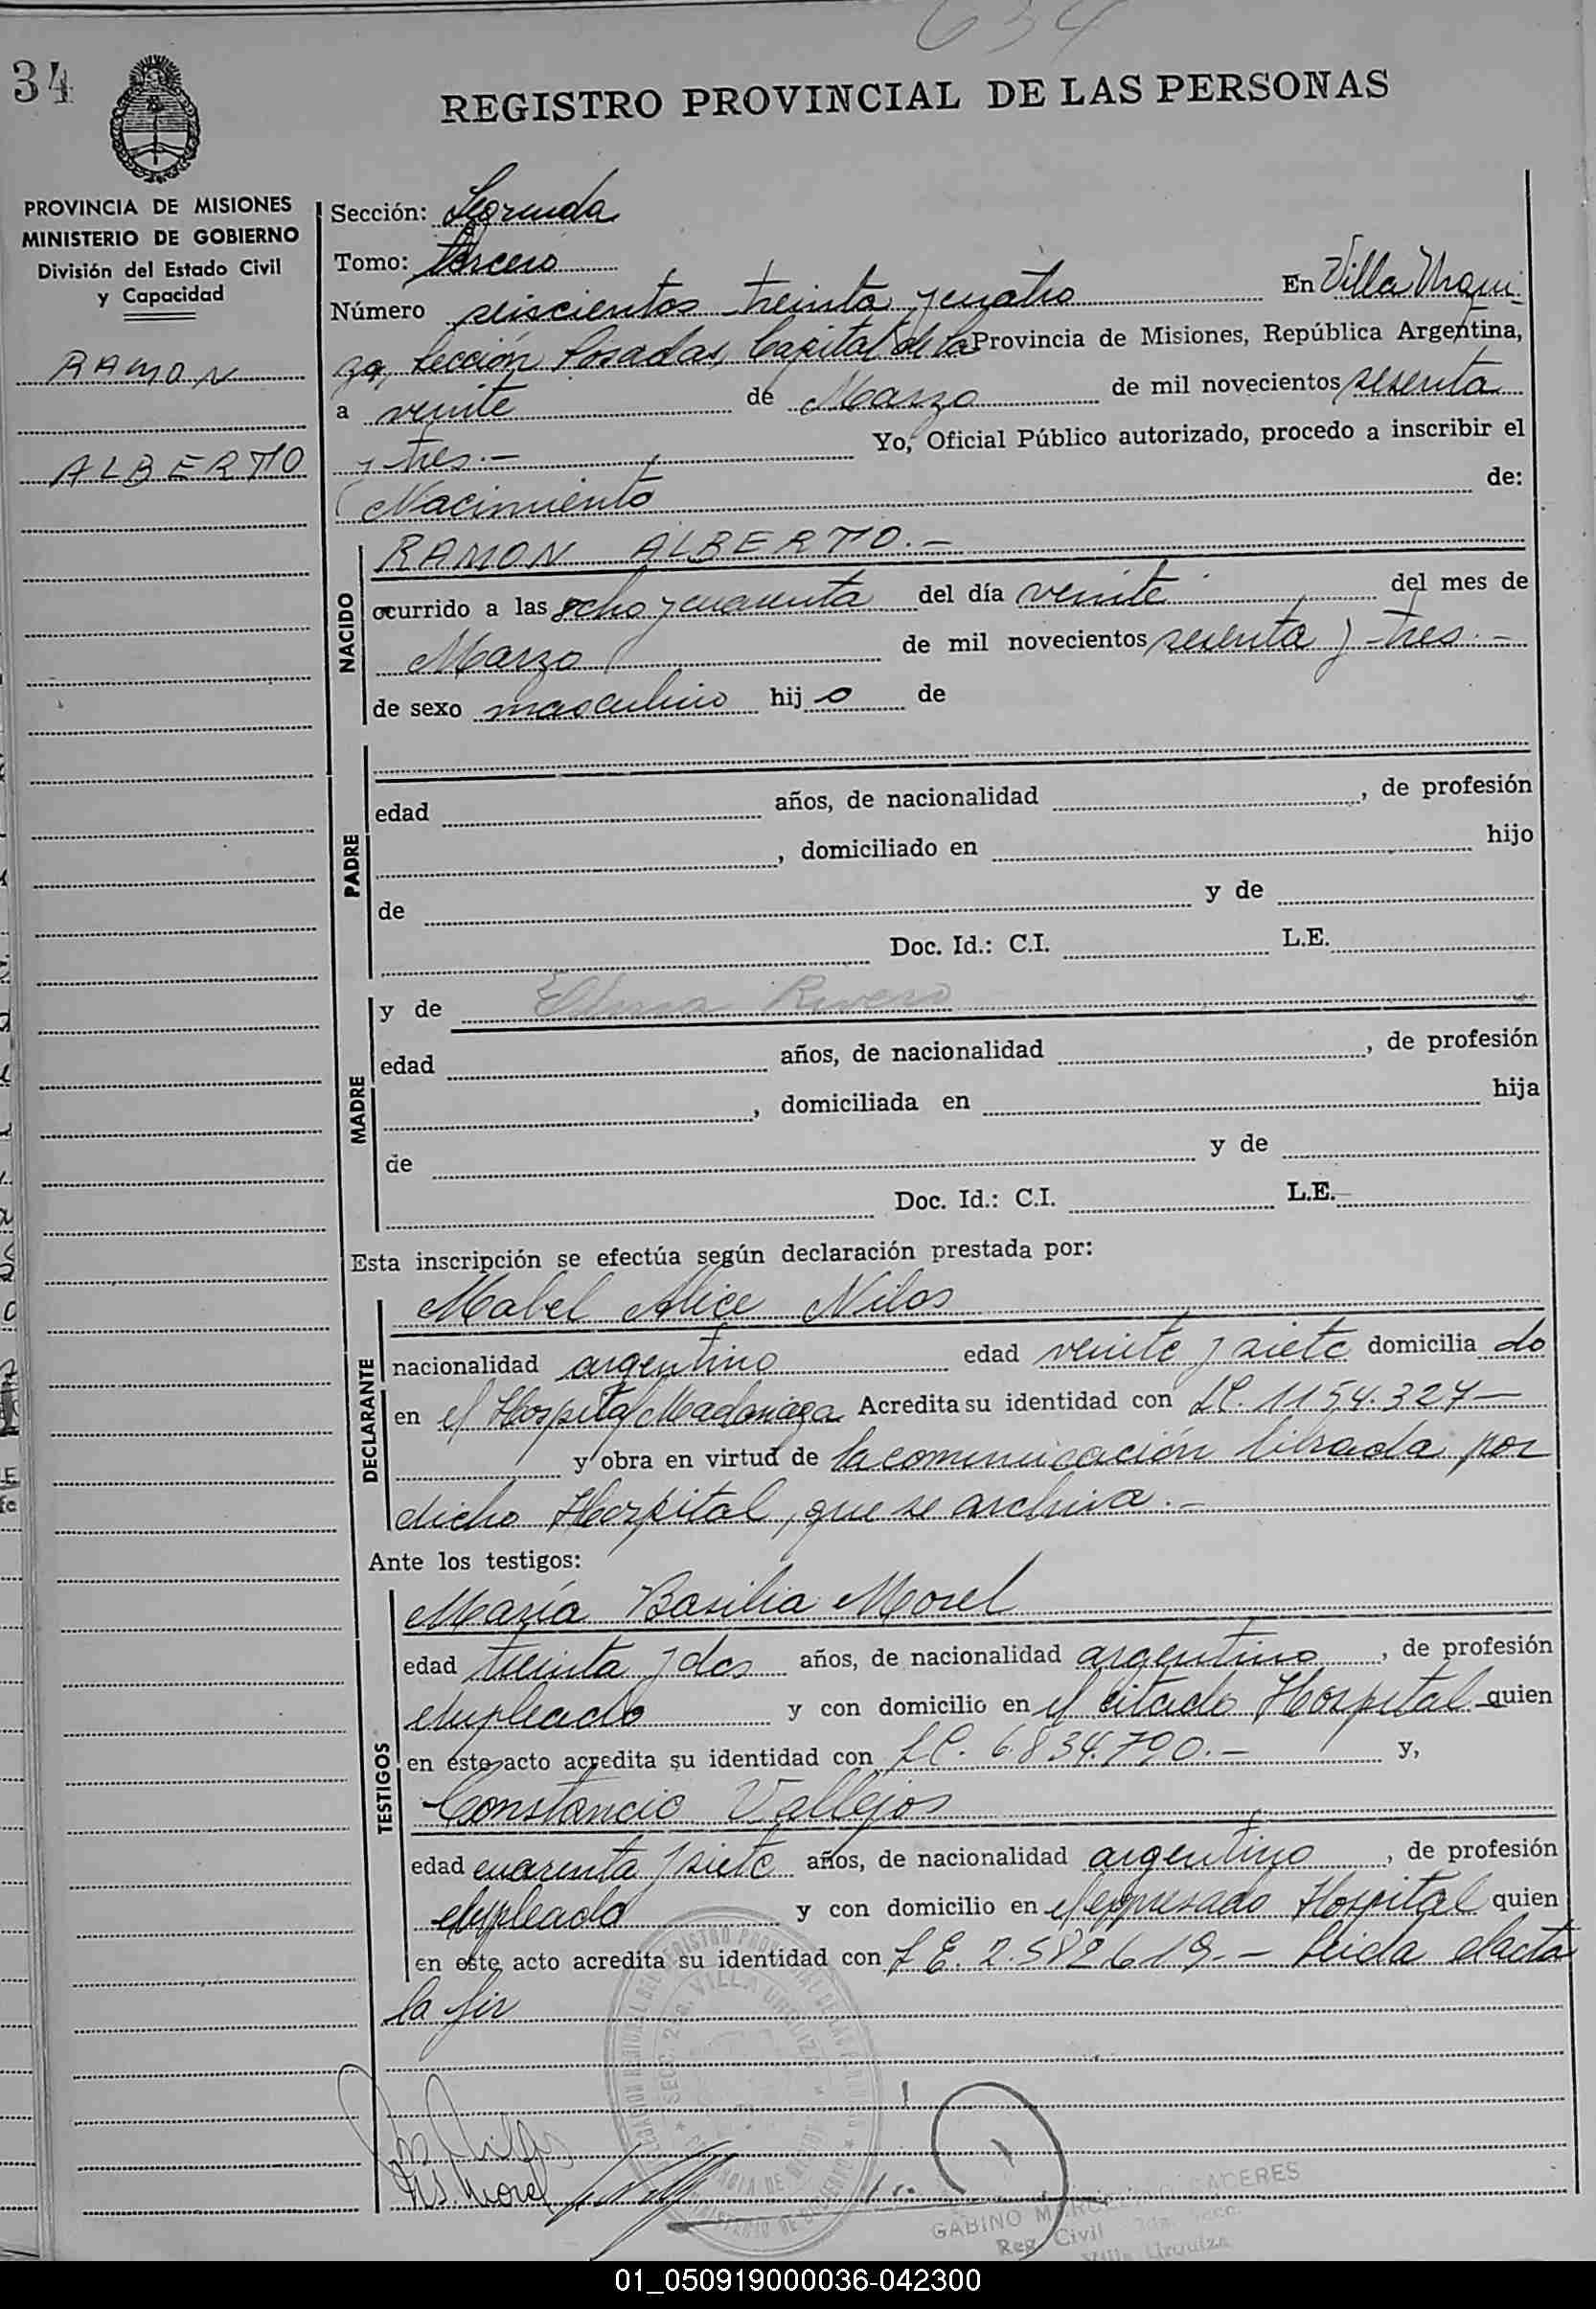 634
34
REGISTRO PROVINCIAL DE LAS PERSONAS
PROVINCIA DE MISIONES
MINISTERIO DE GOBIERNO
División del Estado Civil
y Capacidad
RAMON
ALBERTO
Sección: Segunda
Tomo: tercero
Número seiscientos treinta y cuatro En Villa Urqui-
za, Sección Posadas, Capital de la Provincia de Misiones, República Argentina,
a veinte de Marzo de mil novecientos sesenta
y tres.- Yo, Oficial Público autorizado, procedo a inscribir el
Nacimiento de:
NACIDO
RAMON ALBERTO.-
ocurrido a las ocho y cuarenta del día veinte del mes de
Marzo de mil novecientos sesenta y tres.-
de sexo masculino hijo de
PADRE
edad años, de nacionalidad , de profesión
, domiciliado en hijo
de y de
Doc. Id.: C.I. L.E.
MADRE
y de Elma Rivero
edad años, de nacionalidad , de profesión
, domiciliada en hija
de y de
Doc. Id.: C.I. L.E.
Esta inscripción se efectúa según declaración prestada por:
DECLARANTE
Mabel Alice Nilos
nacionalidad argentino edad veinte y siete domiciliado
en el Hospital Madariaga Acredita su identidad con LC. 1154.327-
y obra en virtud de la comunicación librada por
dicho Hospital, que se archiva.-
Ante los testigos:
TESTIGOS
María Basilia Morel
edad treinta y dos años, de nacionalidad argentino, de profesión
empleado y con domicilio en el citado Hospital quien
en este acto acredita su identidad con LC. 6.834.790.- y,
Constancio Vallejos
edad cuarenta y siete años, de nacionalidad argentino, de profesión
empleado y con domicilio en el expresado Hospital quien
en este acto acredita su identidad con L E. 2.582.619.- Leida el acta
la fir
SECC. 2da. VILLA URQUIZA
Morel
GABINO CACERES
Reg. Civil 2da. Secc.
Villa Urquiza
01_050919000036-042300